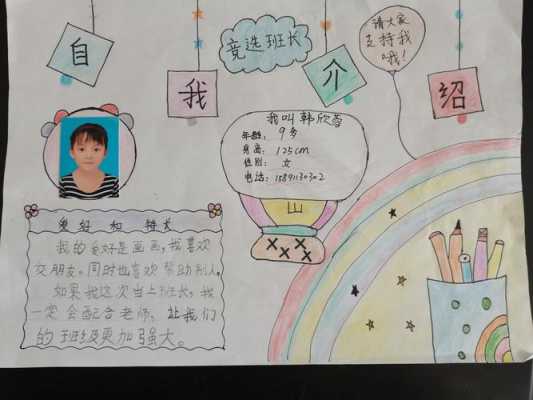 自我介绍
竞选班长
请大家
支持我
哦！
我叫韩欣蓉
年龄：9岁
身高：125cm
性别：女
电话：15891130302
山
爱好和特长
我的爱好是画画，我喜欢
交朋友。同时也喜欢帮助别人，
如果我这次当上班长，我
一定会配合老师，让我们
的班级更加强大。